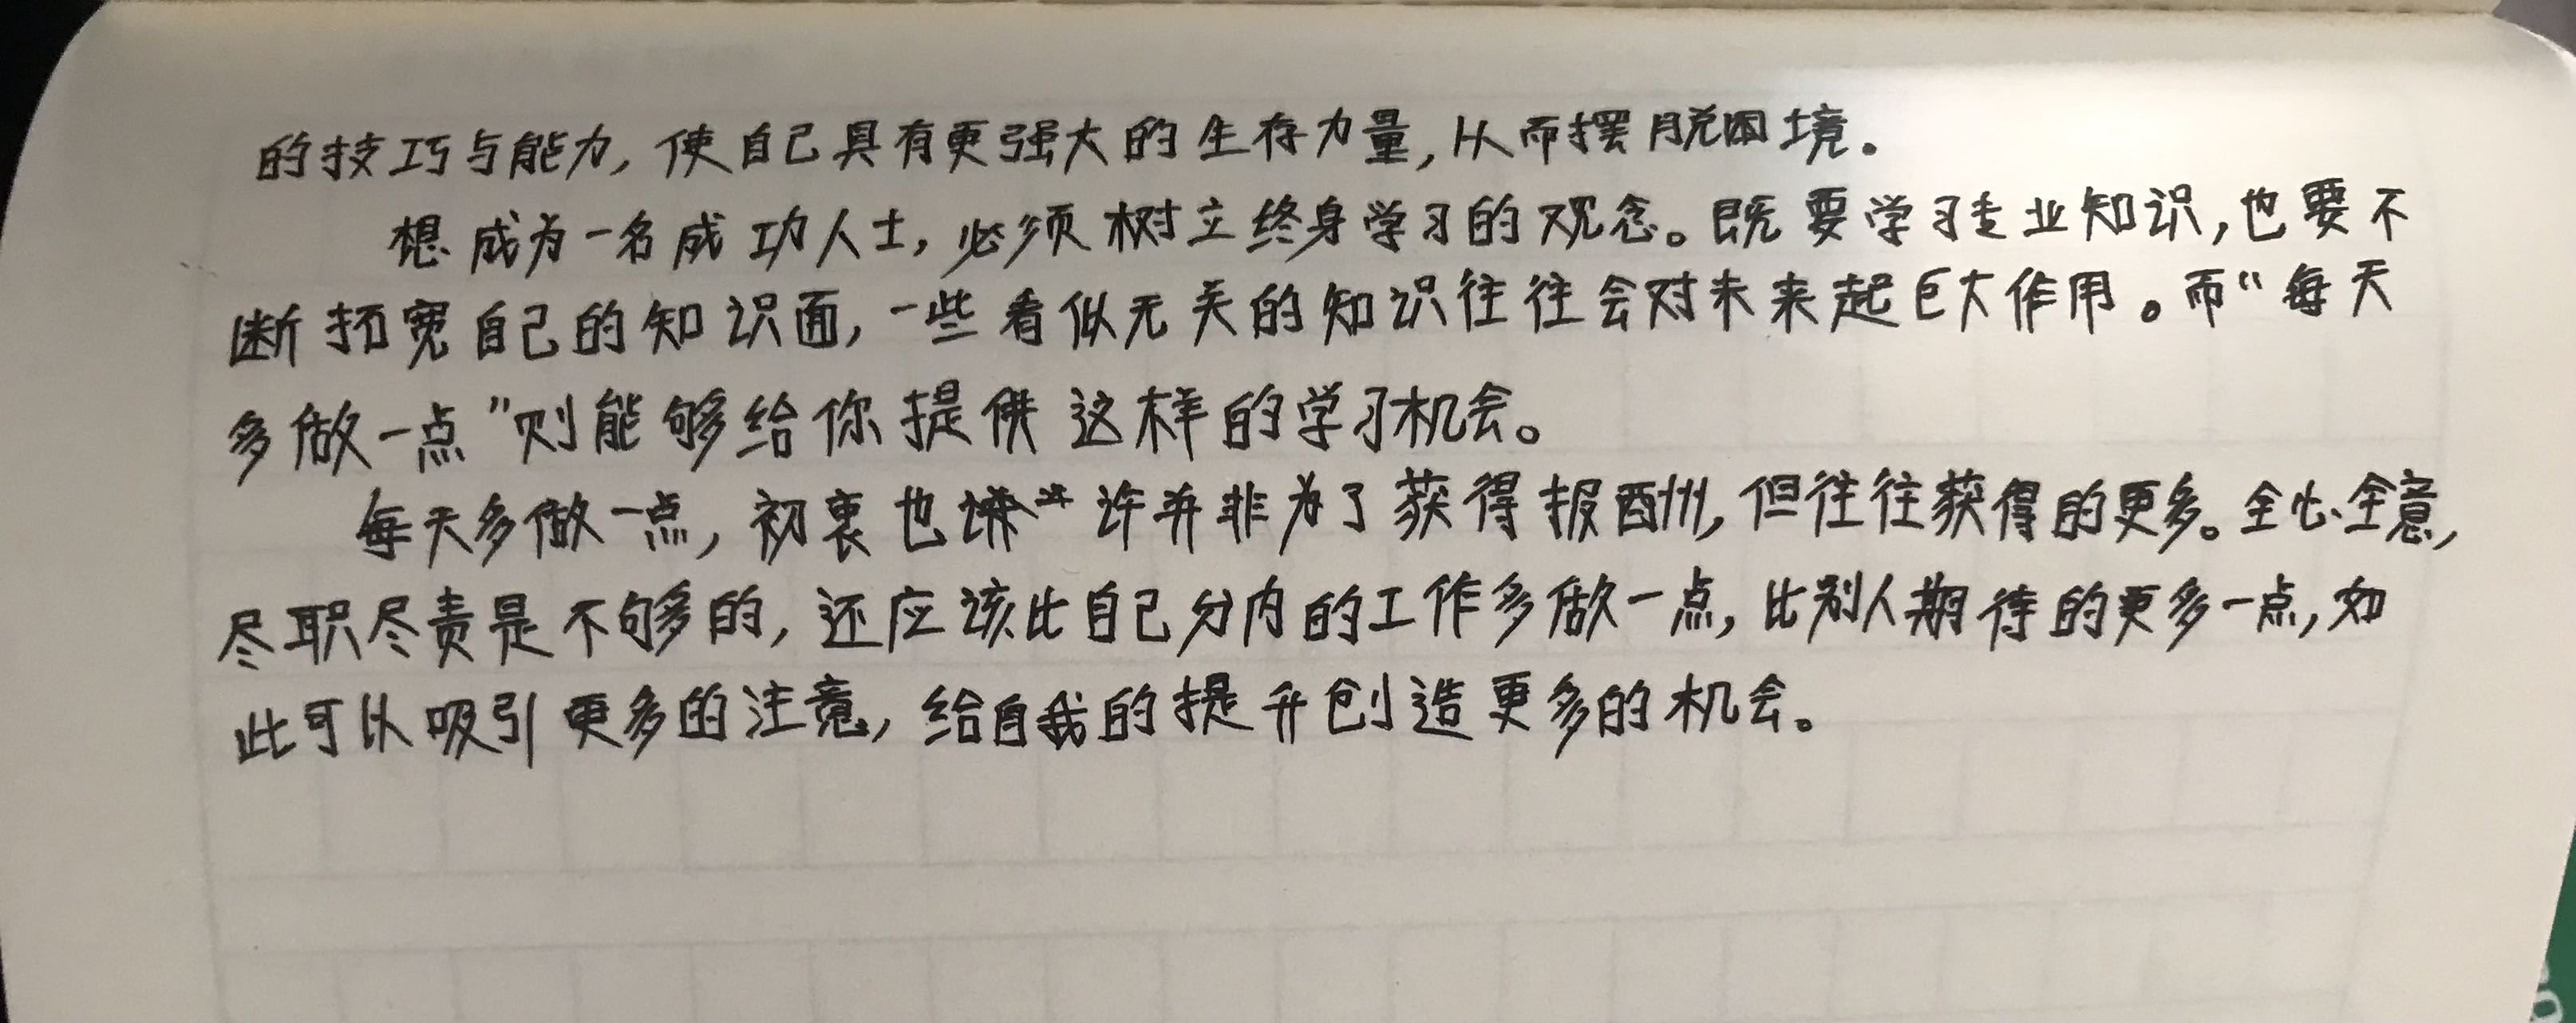 的技巧与能力,使自己具有更强大的生存力量,从而摆脱困境。
想成为一名成功人士,必须树立终身学习的观念。既要学习专业知识,也要不
断拓宽自己的知识面,一些看似无关的知识往往会对未来起巨大作用。而“每天
多做一点”则能够给你提供这样的学习机会。
每天多做一点,初衷也许并非为了获得报酬,但往往获得的更多。全心全意,
尽职尽责是不够的,还应该比自己分内的工作多做一点,比别人期待的更多一点,如
此可以吸引更多的注意,给自我的提升创造更多的机会。